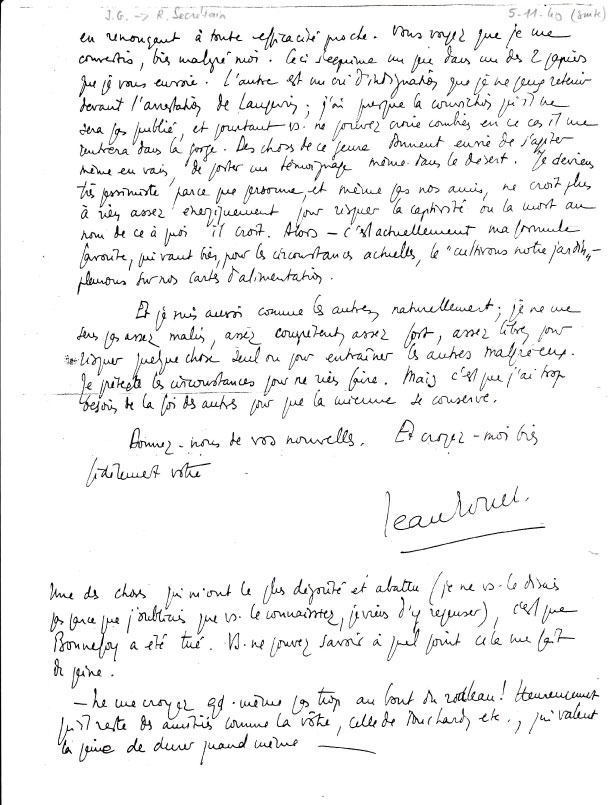 J.G. -> R. Secrétain 5-11-40 (suite)
en renonçant à toute efficacité proche. Vous voyez que je me
convertis, bien malgré moi. Ceci s'exprime un peu dans un des 2 papiers
que je vous envoie. L'autre est un cri d'indignation que je ne peux retenir
devant l'arrestation de Langevin ; j'ai presque la conviction qu'il ne
sera pas publié, et pourtant vs. ne pouvez croire combien en ce cas il me
rentrera dans la gorge. Des choses de ce genre donnent envie de s'agiter
même en vain, de porter un témoignage même dans le désert. Je deviens
très pessimiste parce que personne, et même pas nos amis, ne croit plus
à rien assez énergiquement pour risquer la captivité ou la mort au
nom de ce à quoi il croit. Alors – c'est actuellement ma formule
favorite, qui vaut bien, pour les circonstances actuelles, le "cultivons notre jardin" –
pleurons sur nos cartes d'alimentation.
Et je suis aussi comme les autres, naturellement ; je ne me
sens pas assez malin, assez compétent, assez fort, assez libre pour
risquer quelque chose seul ou pour entraîner les autres malgré eux.
Je prétexte les circonstances pour ne rien faire. Mais c'est que j'ai trop
besoin de la foi des autres pour que la mienne se conserve.
Donnez-nous de vos nouvelles. Et croyez-moi bien
fidèlement vôtre
Jean
Une des choses qui m'ont le plus dégoûté et abattu (je ne vs. le disais
pas parce que j'oubliais que vs. le connaissiez, je viens d'y repenser), c'est que
Bonnefoy a été tué. Vs. ne pouvez savoir à quel point cela me fait
de peine.
– Ne me croyez qd. même pas trop au bout du rouleau ! Heureusement
qu'il reste des amitiés comme la vôtre, celle de etc., qui valent
la peine de durer quand même —